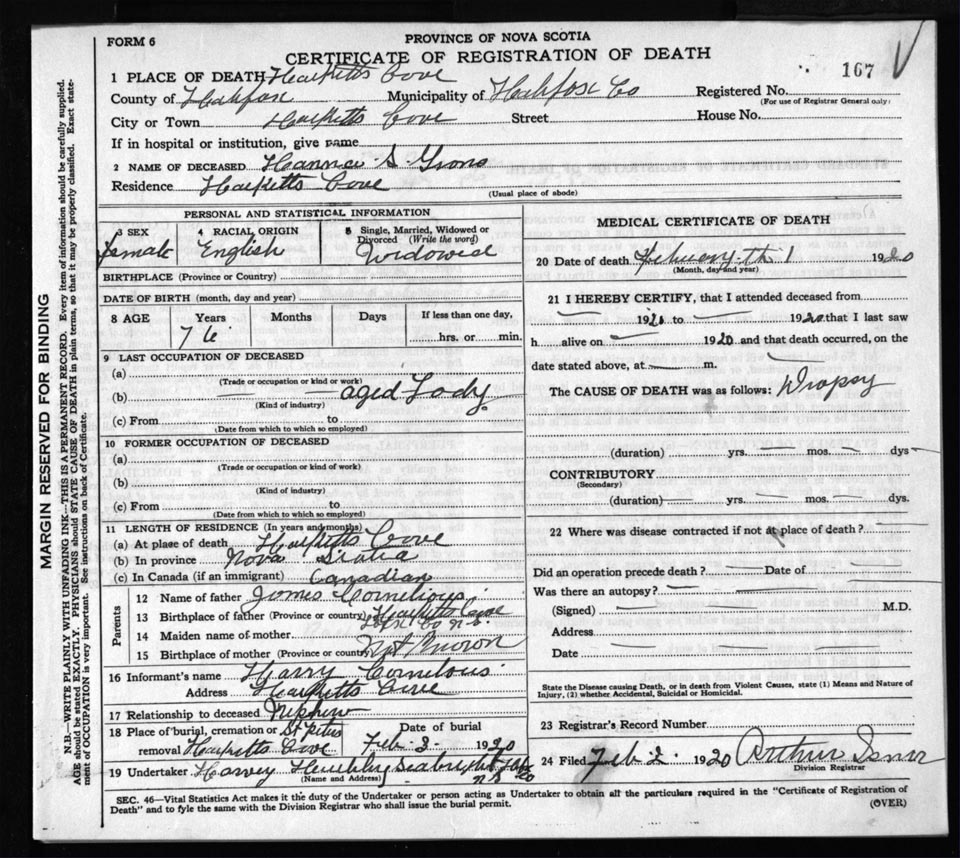 FORM 6
PROVINCE OF NOVA SCOTIA
CERTIFICATE OF REGISTRATION OF DEATH
167
1 PLACE OF DEATH Hacketts Cove
County of Halifax Municipality of Halifax Co Registered No.
(For use of Registrar General only)
City or Town Hacketts Cove Street House No.
If in hospital or institution, give name
2 NAME OF DECEASED Hanna S
Residence Hacketts Cove
(Usual place of abode)
PERSONAL AND STATISTICAL INFORMATION
3 SEX 4 RACIAL ORIGIN 5 Single, Married, Widowed or Divorced (Write the word)
Female English Widowed
BIRTHPLACE (Province or Country)
DATE OF BIRTH (month, day and year)
8 AGE Years Months Days If less than one day,
76 hrs. or min.
9 LAST OCCUPATION OF DECEASED
(a)
(Trade or occupation or kind or work)
(b) aged Lady
(Kind of industry)
(c) From to
(Date from which to which so employed)
10 FORMER OCCUPATION OF DECEASED
(a)
(Trade or occupation or kind of work)
(b)
(Kind of industry)
(c) From to
(Date from which to which so employed)
11 LENGTH OF RESIDENCE (In years and months)
(a) At place of death Hacketts Cove
(b) In province Nova Scotia
(c) In Canada (if an immigrant) Canadian
Parents
12 Name of father James Cornelious
13 Birthplace of father (Province or country) Hacketts Cove
Hfx Co N.S.
14 Maiden name of mother
15 Birthplace of mother (Province or country) Not Known
16 Informant's name Harry Cornelous
Address Hacketts Cove
17 Relationship to deceased Nephew
18 Place of burial, cremation or removal St Peters Hacketts Cove
Date of burial
Feb. 3 1920
19 Undertaker Harvey Hubley Seabright Hfx Co N.S.
(Name and Address)
MEDICAL CERTIFICATE OF DEATH
20 Date of death February th 1 1920
(Month, day and year)
21 I HEREBY CERTIFY, that I attended deceased from
1920 to 1920 that I last saw
h alive on 1920 and that death occurred, on the
date stated above, at m.
The CAUSE OF DEATH was as follows: Dropsy
(duration) yrs. mos. dys
CONTRIBUTORY
(Secondary)
(duration) yrs. mos. dys.
22 Where was disease contracted if not at place of death?
Did an operation precede death? Date of
Was there an autopsy?
(Signed) M.D.
Address
Date
State the Disease causing Death, or in death from Violent Causes, state (1) Means and Nature of
Injury, (2) whether Accidental, Suicidal or Homicidal.
23 Registrar's Record Number
24 Filed Feb 2 1920 Arthur Isnor
Division Registrar
SEC. 46—Vital Statistics Act makes it the duty of the Undertaker or person acting as Undertaker to obtain all the particulars required in the "Certificate of Registration of
Death" and to fyle the same with the Division Registrar who shall issue the burial permit.
(OVER)
MARGIN RESERVED FOR BINDING
N.B.—WRITE PLAINLY WITH UNFADING INK—THIS IS A PERMANENT RECORD. Every item of information should be carefully supplied.
AGE should be stated EXACTLY. PHYSICIANS should STATE CAUSE OF DEATH in plain terms, so that it may be properly classified. Exact state-
ment of OCCUPATION is very important. See instructions on back of Certificate.